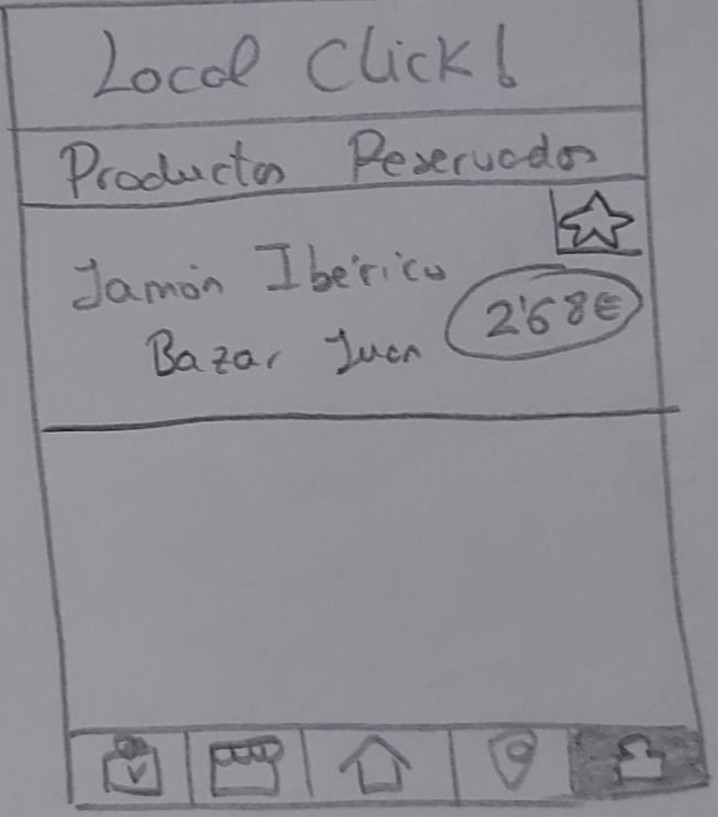 Local Click!
Productos Reservados
Jamón Ibérico
2'68€
Bazar Juan